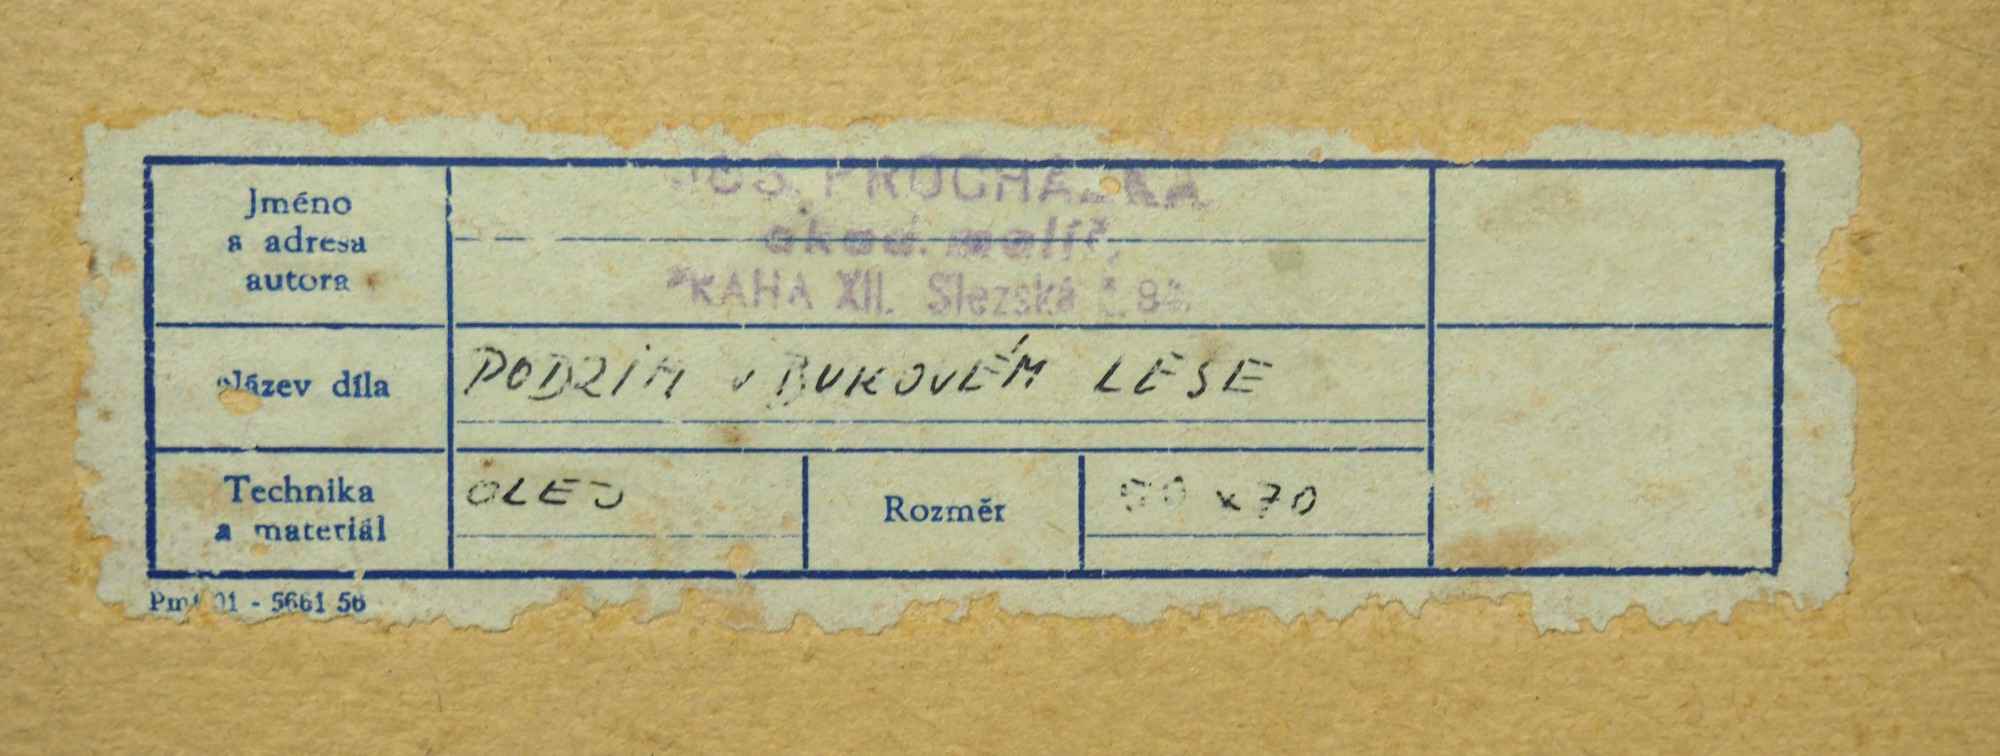 Jméno
a adresa
autora
JOS. PROCHÁZKA
akad. malíř,
PRAHA XII. Slezská č.
Název díla
PODZIM v BUKOVÉM LESE
Technika
a materiál
OLEJ
Rozměr
x 70
01 - 5661 56